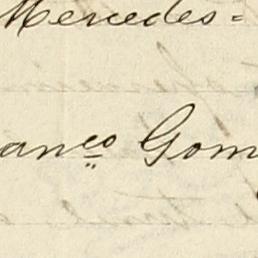 Mercedes=
anco Gom